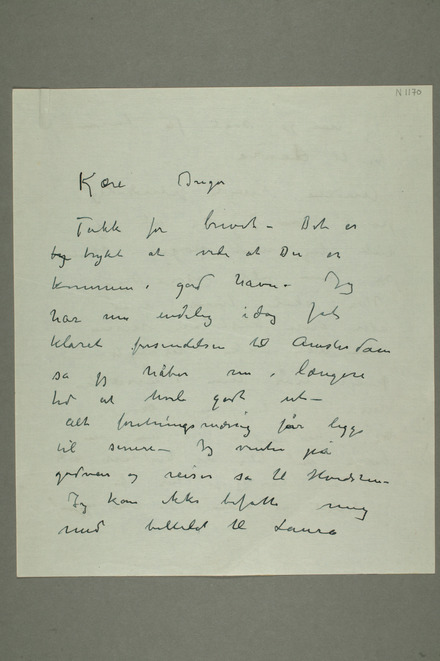 N 1170
Kære Inger
Takk for brevet – Det er
trykt at vide at Du er
kommen i god havn – Jeg
har nu endelig idag fåt
klaret forsendelsen til Amsterdam
så jeg håber nu i længere
tid at hvile godt ut –
alt forretningsmæssig får ligge
til senere – Jeg venter på
og reiser så til Hvidsten –
Jeg kan ikke befatte mig
med billedet til Laura